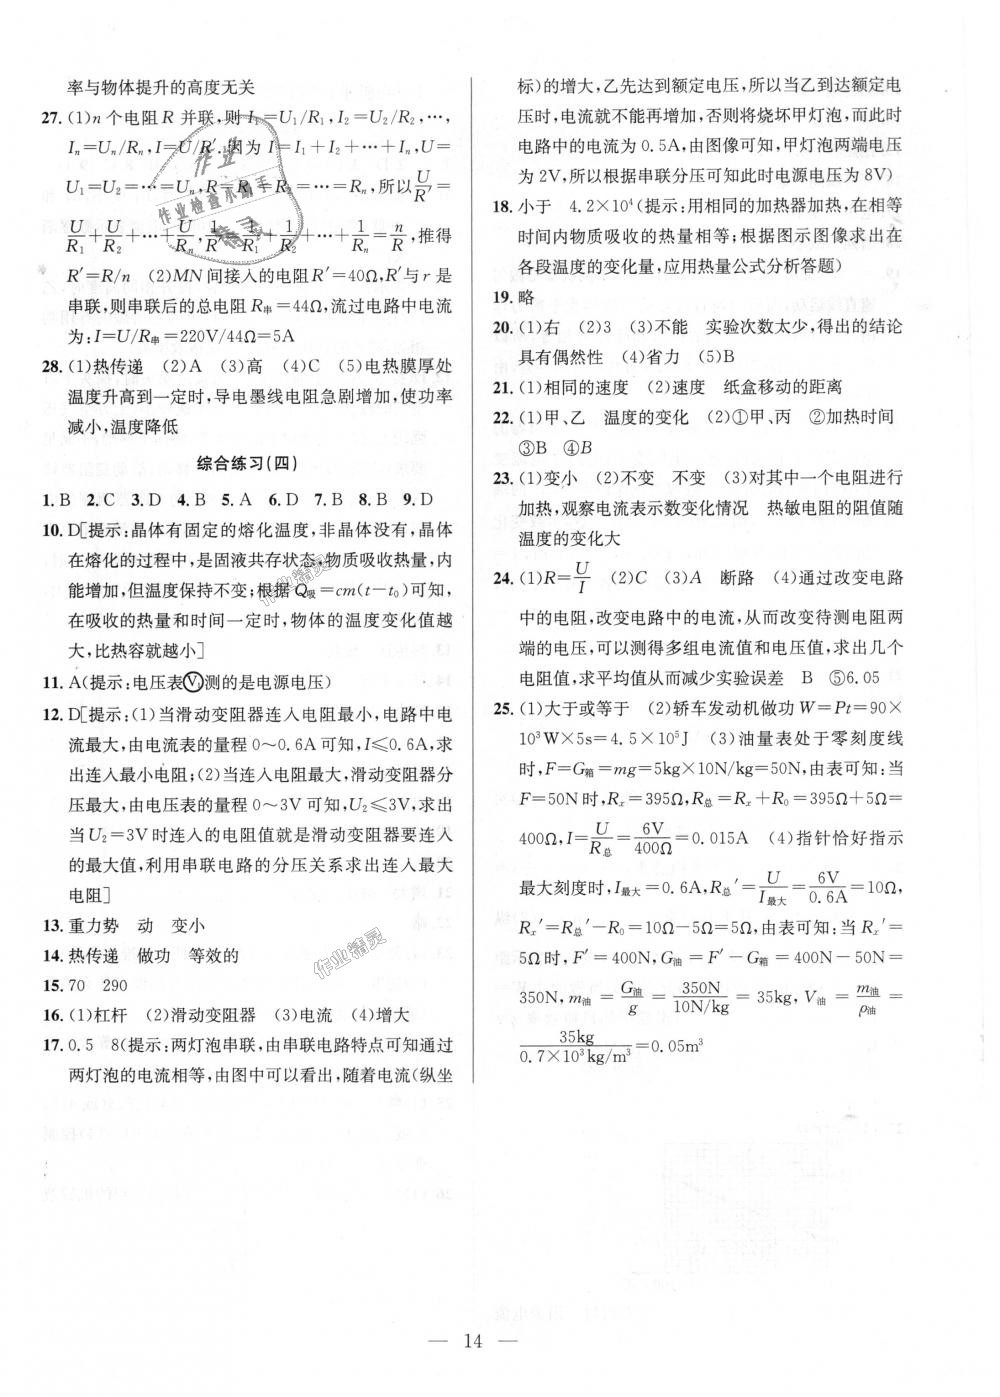 率与物体提升的高度无关
27. (1)n 个电阻 R 并联,则 I₁=U₁/R₁,I₂=U₂/R₂,…,
Iₙ=Uₙ/Rₙ,I=U/R′.因为 I=I₁+I₂+…+Iₙ,U=
U₁=U₂=…=Uₙ,R=R₁=R₂=…=Rₙ,所以 U/R′=
U/R₁+U/R₂+…+U/Rₙ,1/R′=1/R₁+1/R₂+…+1/Rₙ=n/R,推得
R′=R/n (2)MN 间接入的电阻 R′=40Ω,R′与 r 是
串联,则串联后的总电阻 R串=44Ω,流过电路中电流
为:I=U/R串=220V/44Ω=5A
28. (1)热传递 (2)A (3)高 (4)C (5)电热膜厚处
温度升高到一定时,导电墨线电阻急剧增加,使功率
减小,温度降低
综合练习(四)
1. B 2. C 3. D 4. B 5. A 6. D 7. B 8. B 9. D
10. D[提示:晶体有固定的熔化温度,非晶体没有,晶体
在熔化的过程中,是固液共存状态,物质吸收热量,内
能增加,但温度保持不变;根据 Q吸=cm(t−t₀)可知,
在吸收的热量和时间一定时,物体的温度变化值越
大,比热容就越小]
11. A(提示:电压表Ⓥ测的是电源电压)
12. D[提示:(1)当滑动变阻器连入电阻最小,电路中电
流最大,由电流表的量程 0~0.6A 可知,I≤0.6A,求
出连入最小电阻;(2)当连入电阻最大,滑动变阻器分
压最大,由电压表的量程 0~3V 可知,U₂≤3V,求出
当 U₂=3V 时连入的电阻值就是滑动变阻器要连入
的最大值,利用串联电路的分压关系求出连入最大
电阻]
13. 重力势 动 变小
14. 热传递 做功 等效的
15. 70 290
16. (1)杠杆 (2)滑动变阻器 (3)电流 (4)增大
17. 0.5 8(提示:两灯泡串联,由串联电路特点可知通过
两灯泡的电流相等,由图中可以看出,随着电流(纵坐
标)的增大,乙先达到额定电压,所以当乙到达额定电
压时,电流就不能再增加,否则将烧坏甲灯泡,而此时
电路中的电流为 0.5A,由图像可知,甲灯泡两端电压
为 2V,所以根据串联分压可知此时电源电压为 8V)
18. 小于 4.2×10⁴(提示:用相同的加热器加热,在相等
时间内物质吸收的热量相等;根据图示图像求出在
各段温度的变化量,应用热量公式分析答题)
19. 略
20. (1)右 (2)3 (3)不能 实验次数太少,得出的结论
具有偶然性 (4)省力 (5)B
21. (1)相同的速度 (2)速度 纸盒移动的距离
22. (1)甲、乙 温度的变化 (2)①甲、丙 ②加热时间
③B ④B
23. (1)变小 (2)不变 不变 (3)对其中一个电阻进行
加热,观察电流表示数变化情况 热敏电阻的阻值随
温度的变化大
24. (1)R=U/I (2)C (3)A 断路 (4)通过改变电路
中的电阻,改变电路中的电流,从而改变待测电阻两
端的电压,可以测得多组电流值和电压值,求出几个
电阻值,求平均值从而减少实验误差 B ⑤6.05
25. (1)大于或等于 (2)轿车发动机做功 W=Pt=90×
10³W×5s=4.5×10⁵J (3)油量表处于零刻度线
时,F=G箱=mg=5kg×10N/kg=50N,由表可知:当
F=50N 时,Rₓ=395Ω,R总=Rₓ+R₀=395Ω+5Ω=
400Ω,I=U/R总=6V/400Ω=0.015A (4)指针恰好指示
最大刻度时,I最大=0.6A,R总′=U/I最大=6V/0.6A=10Ω,
Rₓ′=R总′−R₀=10Ω−5Ω=5Ω,由表可知:当 Rₓ′=
5Ω时,F′=400N,G油=F′−G箱=400N−50N=
350N,m油=G油/g=350N/10N/kg=35kg,V油=m油/ρ油=
35kg/0.7×10³kg/m³=0.05m³
作业
作业检查小助手
作业精灵
作业精灵
— 14 —